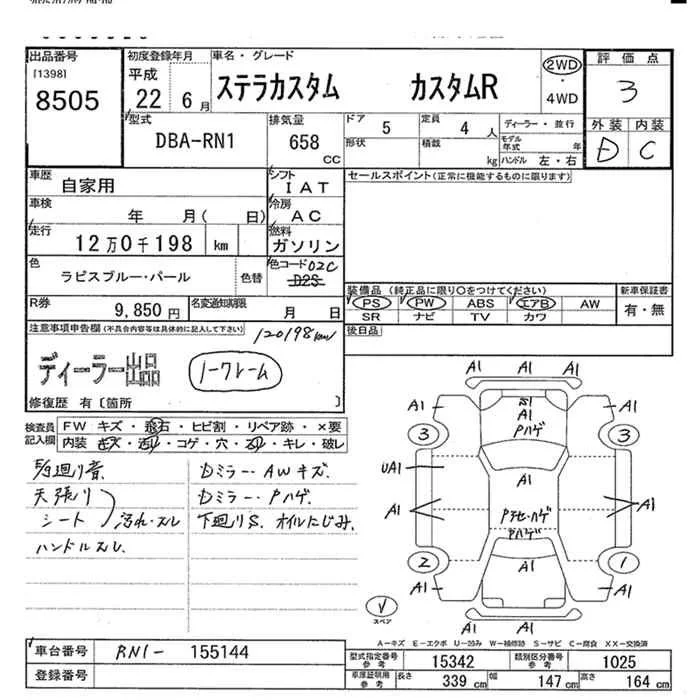 出品番号
[1398]
8505
初度登録年月
平成
22 6月
車名・グレード
ステラカスタム カスタムR
2WD
・
4WD
評価点
3
外装 内装
E C
型式
DBA-RN1
排気量
658
CC
ドア 5
定員 4 人
ディーラー・並行
形状
積載 kg
モデル年式 年
ハンドル 左・右
車歴
自家用
シフト
IAT
セールスポイント(正常に機能するものに限ります)
車検
年 月( 日)
冷房
AC
走行
12万0千198 km
燃料
ガソリン
色
ラピスブルー・パール
色替
色コード 02C
D2S
装備品(純正品に限り○をつけてください)
新車保証書
PS PW ABS エアB AW
有・無
SR ナビ TV カワ
R券
9,850円
名変通知期限
月 日
後日品
注意事項申告欄(不具合内容等は具体的に記入して下さい)
120198km
ディーラー出品
ノークレーム
修復歴 有〔箇所 〕
検査員記入欄
FW キズ・飛石・ヒビ割・リペア跡・×要
内装 キズ・汚れ・コゲ・穴・スレ・キレ・破レ
天張り
シート
汚れ・スレ
ハンドルスレ
Dミラー・AWキズ
Dミラー・Pハゲ
下廻りS、オイルにじみ
A1 A1 A1
A1 A1 A1
Pハゲ
3 3
UA1 A1
A1 A1
Pハゲ
2 1
A1 A1 A1
A1 A1 A1
スペア
A-キズ E-エクボ U-凹み W-補修跡 S-サビ C-腐食 XX-交換済
車台番号
RN1- 155144
型式指定番号 参考
15342
類別区分番号 参考
1025
登録番号
車庫証明用 参考
長さ 339 cm
幅 147 cm
高さ 164 cm